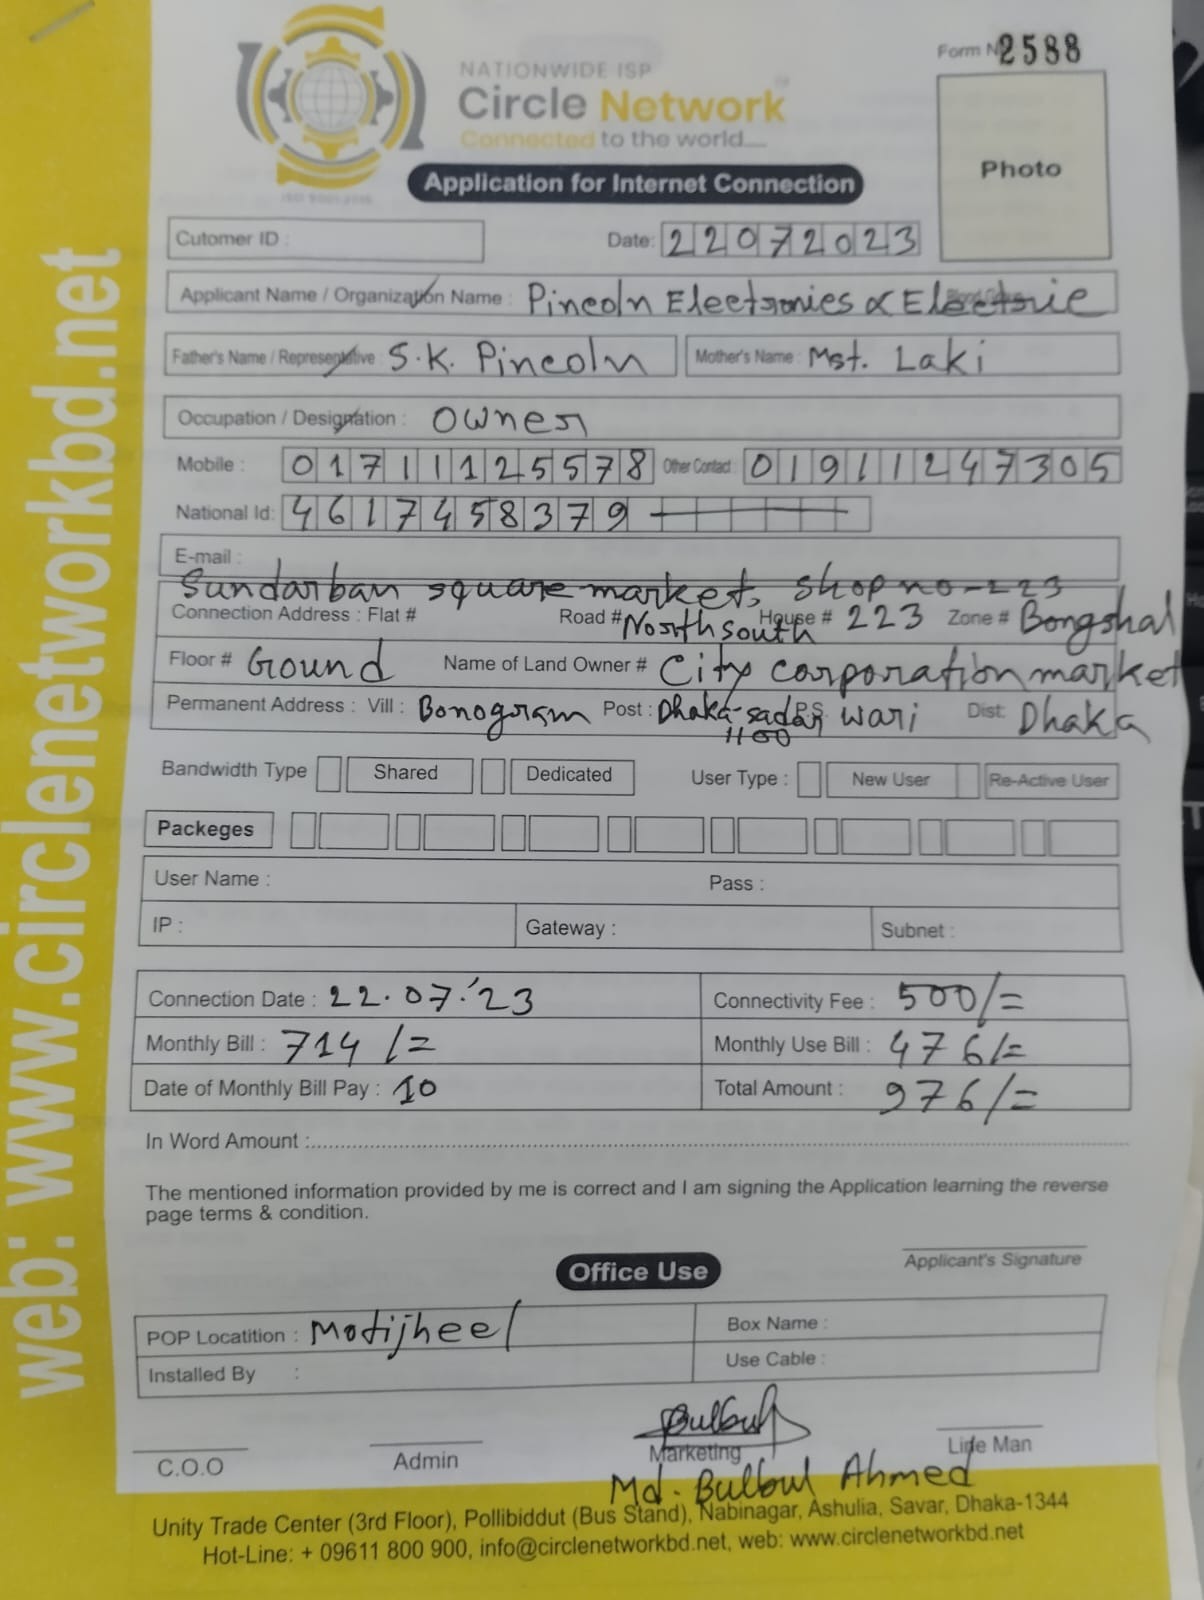 Form N 2588
NATIONWIDE ISP
Circle Network
Connected to the world....
Application for Internet Connection
Photo
Cutomer ID :
Date: 22072023
Applicant Name / Organization Name : Pincoln Electronics & Electric
Father's Name / Representitive : S.K. Pincoln Mother's Name : Mst. Laki
Occupation / Designation : Owner
Mobile : 01711125578 Other Contact : 01911247305
National Id: 4617458379
E-mail :
Sundarban square market, Shop no-223
Connection Address : Flat # Road # North south House # 223 Zone # Bongshal
Floor # Ground Name of Land Owner # City corporation market
Permanent Address : Vill : Bonogram Post : Dhaka-sadar P.S. Wari Dist: Dhaka
1100
Bandwidth Type Shared Dedicated User Type : New User Re-Active User
Packeges
User Name : Pass :
IP : Gateway : Subnet :
Connection Date : 22.07.'23 Connectivity Fee : 500/=
Monthly Bill : 714 /= Monthly Use Bill : 476/=
Date of Monthly Bill Pay : 10 Total Amount : 976/=
In Word Amount :
The mentioned information provided by me is correct and I am signing the Application learning the reverse
page terms & condition.
Applicant's Signature
Office Use
POP Locatition : Motijheel Box Name :
Installed By : Use Cable :
Bulbul
C.O.O Admin Marketing Line Man
Md. Bulbul Ahmed
Unity Trade Center (3rd Floor), Pollibiddut (Bus Stand), Nabinagar, Ashulia, Savar, Dhaka-1344
Hot-Line: + 09611 800 900, info@circlenetworkbd.net, web: www.circlenetworkbd.net
web: www.circlenetworkbd.net